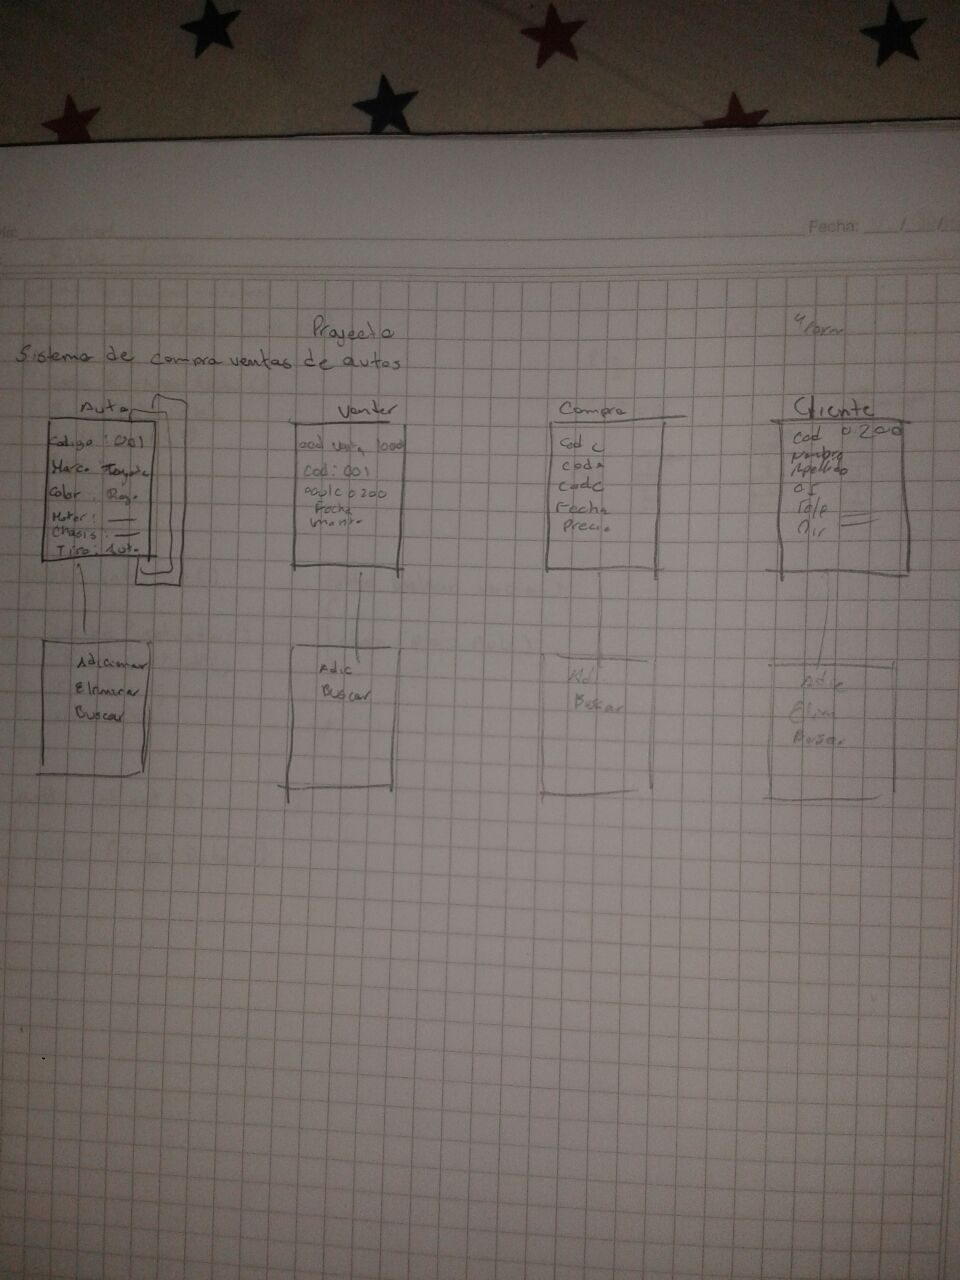 Fecha: ___/___/
Proyecto
4 Form
Sistema de compra ventas de autos
Auto
Codigo : 001
Marca Toyota
Color : Rojo
Motor :
Chasis :
Tipo : Auto
Adicionar
Eliminar
Buscar
Vender
cod venta 1000
Cod : 001
0200
Fecha
Monto
Adic
Buscar
Compra
Cod c
Cod a
Cod C
Fecha
Precio
Ad
Buscar
Cliente
Cod 0200
Nombre
Apellido
CI
Telf
Dir
Adic
Elim
Buscar